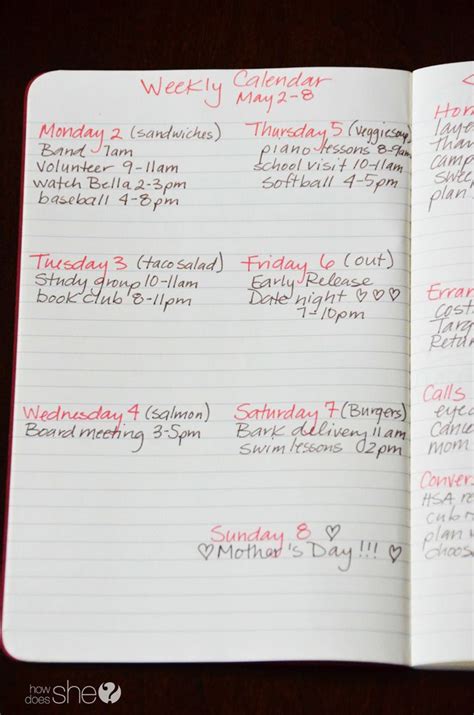 Weekly Calendar
May 2-8
Monday 2 (sandwiches)
Band 7am
Volunteer 9-11am
watch Bella 2-3pm
baseball 4-8pm
Thursday 5 (veggie soup
piano lessons 8-9am
school visit 10-11am
softball 4-5pm
Tuesday 3 (taco salad)
Study group 10-11am
book club 8-11pm
Friday 6 (out)
Early Release
Date night ♡♡♡
7-10pm
Wednesday 4 (salmon)
Board meeting 3-5pm
Saturday 7 (Burgers)
Bark delivery 11am
swim lessons 2pm
Sunday 8 ♡
♡Mother's Day!!! ♡
layo
than
camp
swee
plan
Erran
Cost
Targ
Retu
Calls
eyec
Cance
mom
Conver
HSA re
cub
plan
choos
how
does
she?